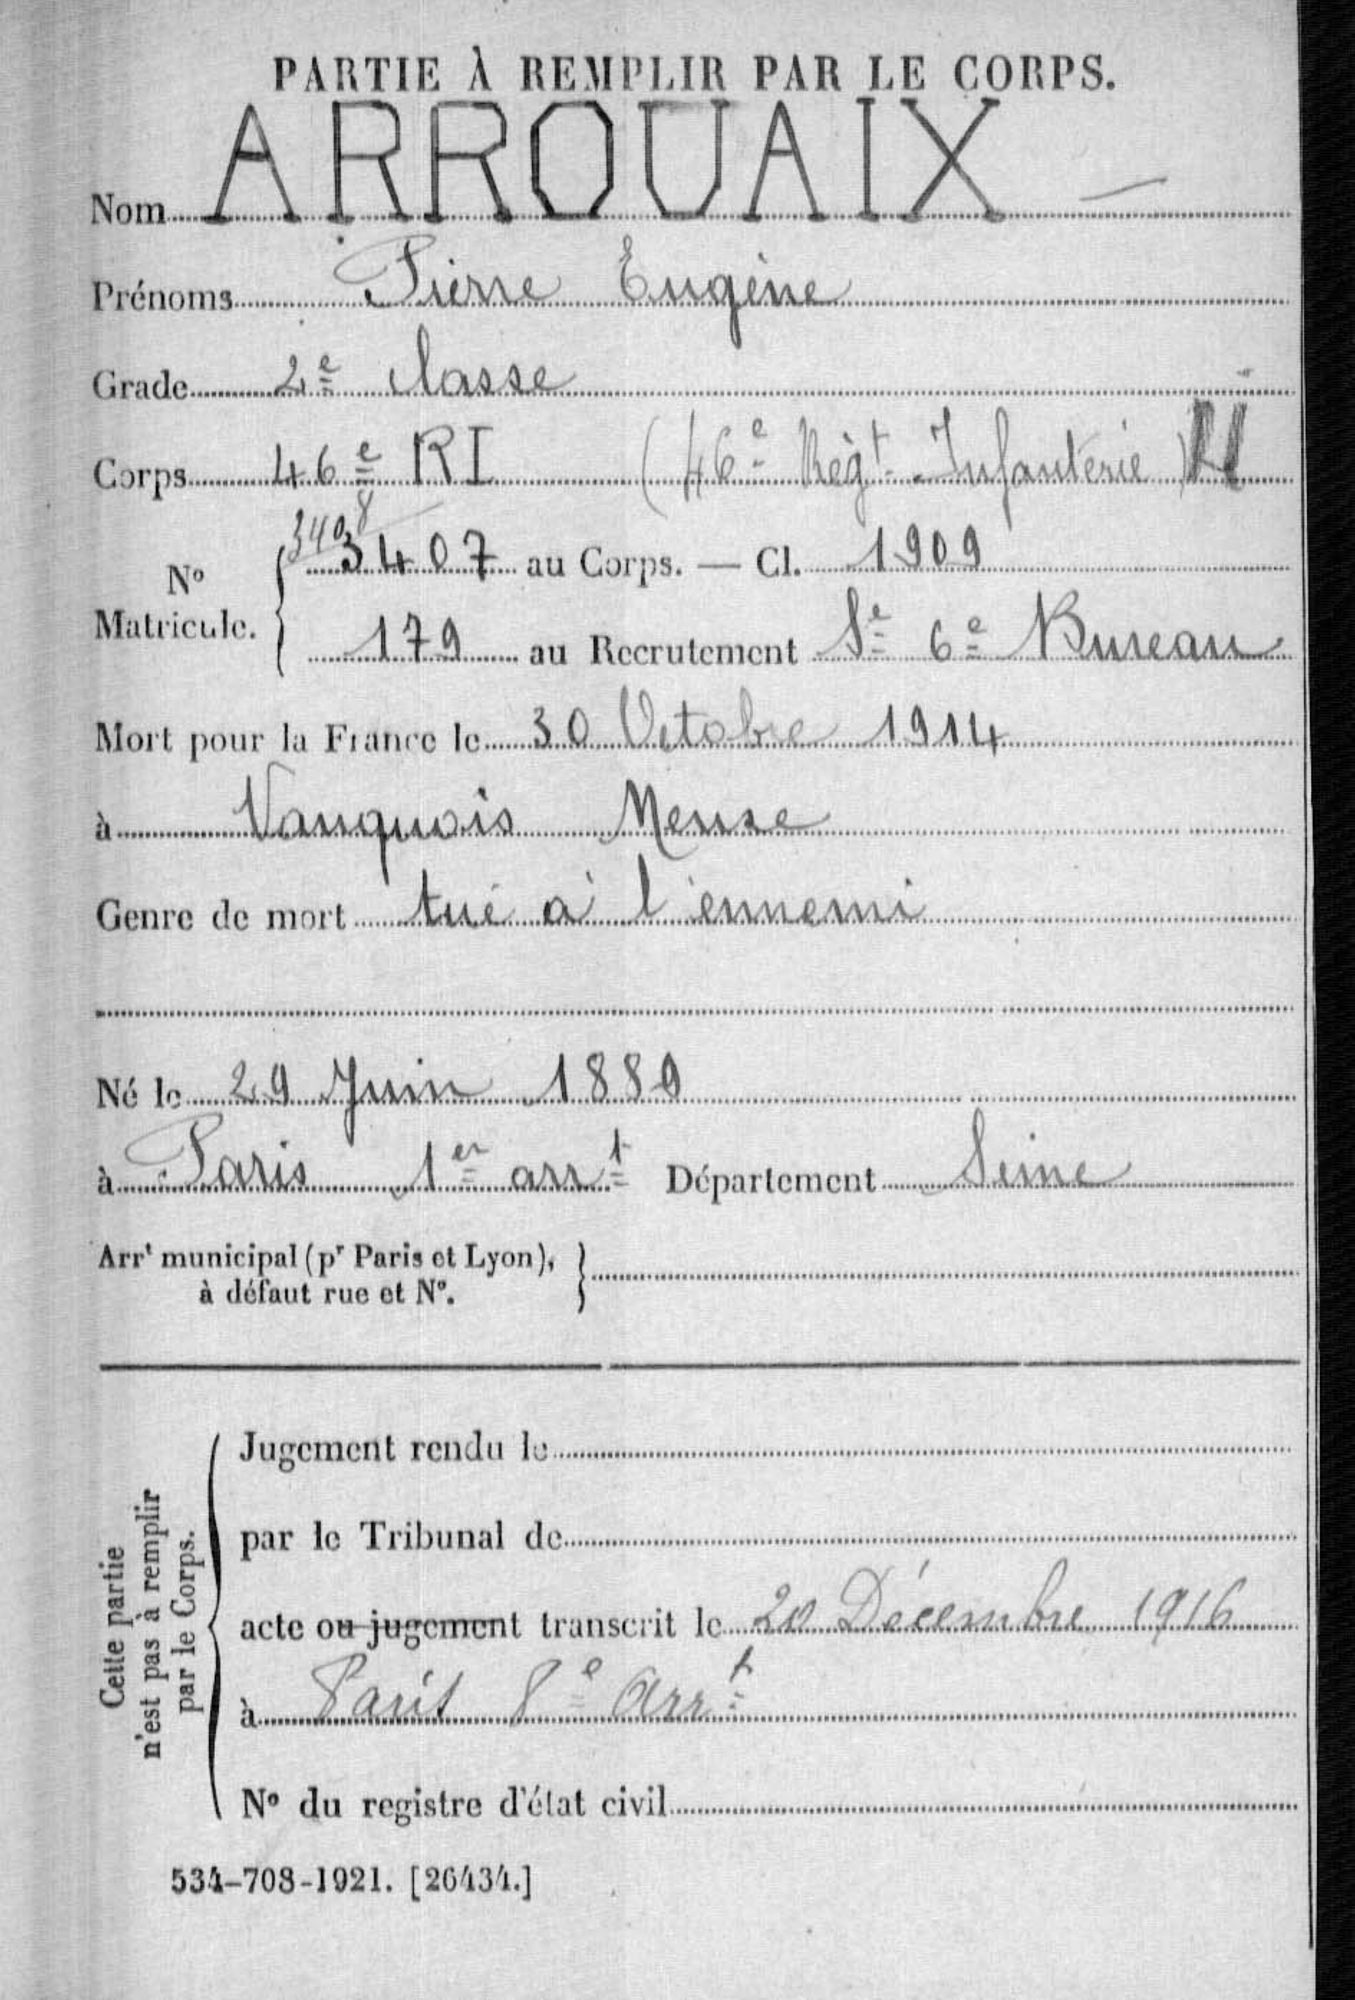 PARTIE À REMPLIR PAR LE CORPS.
Nom ARROUAIX
Prénoms Pierre Eugène
Grade 2e classe
Corps 46e RI (46e Régt Infanterie)
3408
N° Matricule. 3407 au Corps. — Cl. 1909
179 au Recrutement Se 6e Bureau
Mort pour la France le 30 Octobre 1914
à Vauquois Meuse
Genre de mort tué à l'ennemi
Né le 29 Juin 1889
à Paris 1er arrt Département Seine
Arrt municipal (pr Paris et Lyon),
à défaut rue et N°.
Cette partie
n'est pas à remplir
par le Corps.
Jugement rendu le
par le Tribunal de
acte ou jugement transcrit le 20 Décembre 1916
à Paris 8e Arrt
N° du registre d'état civil
534-708-1921. [26434.]